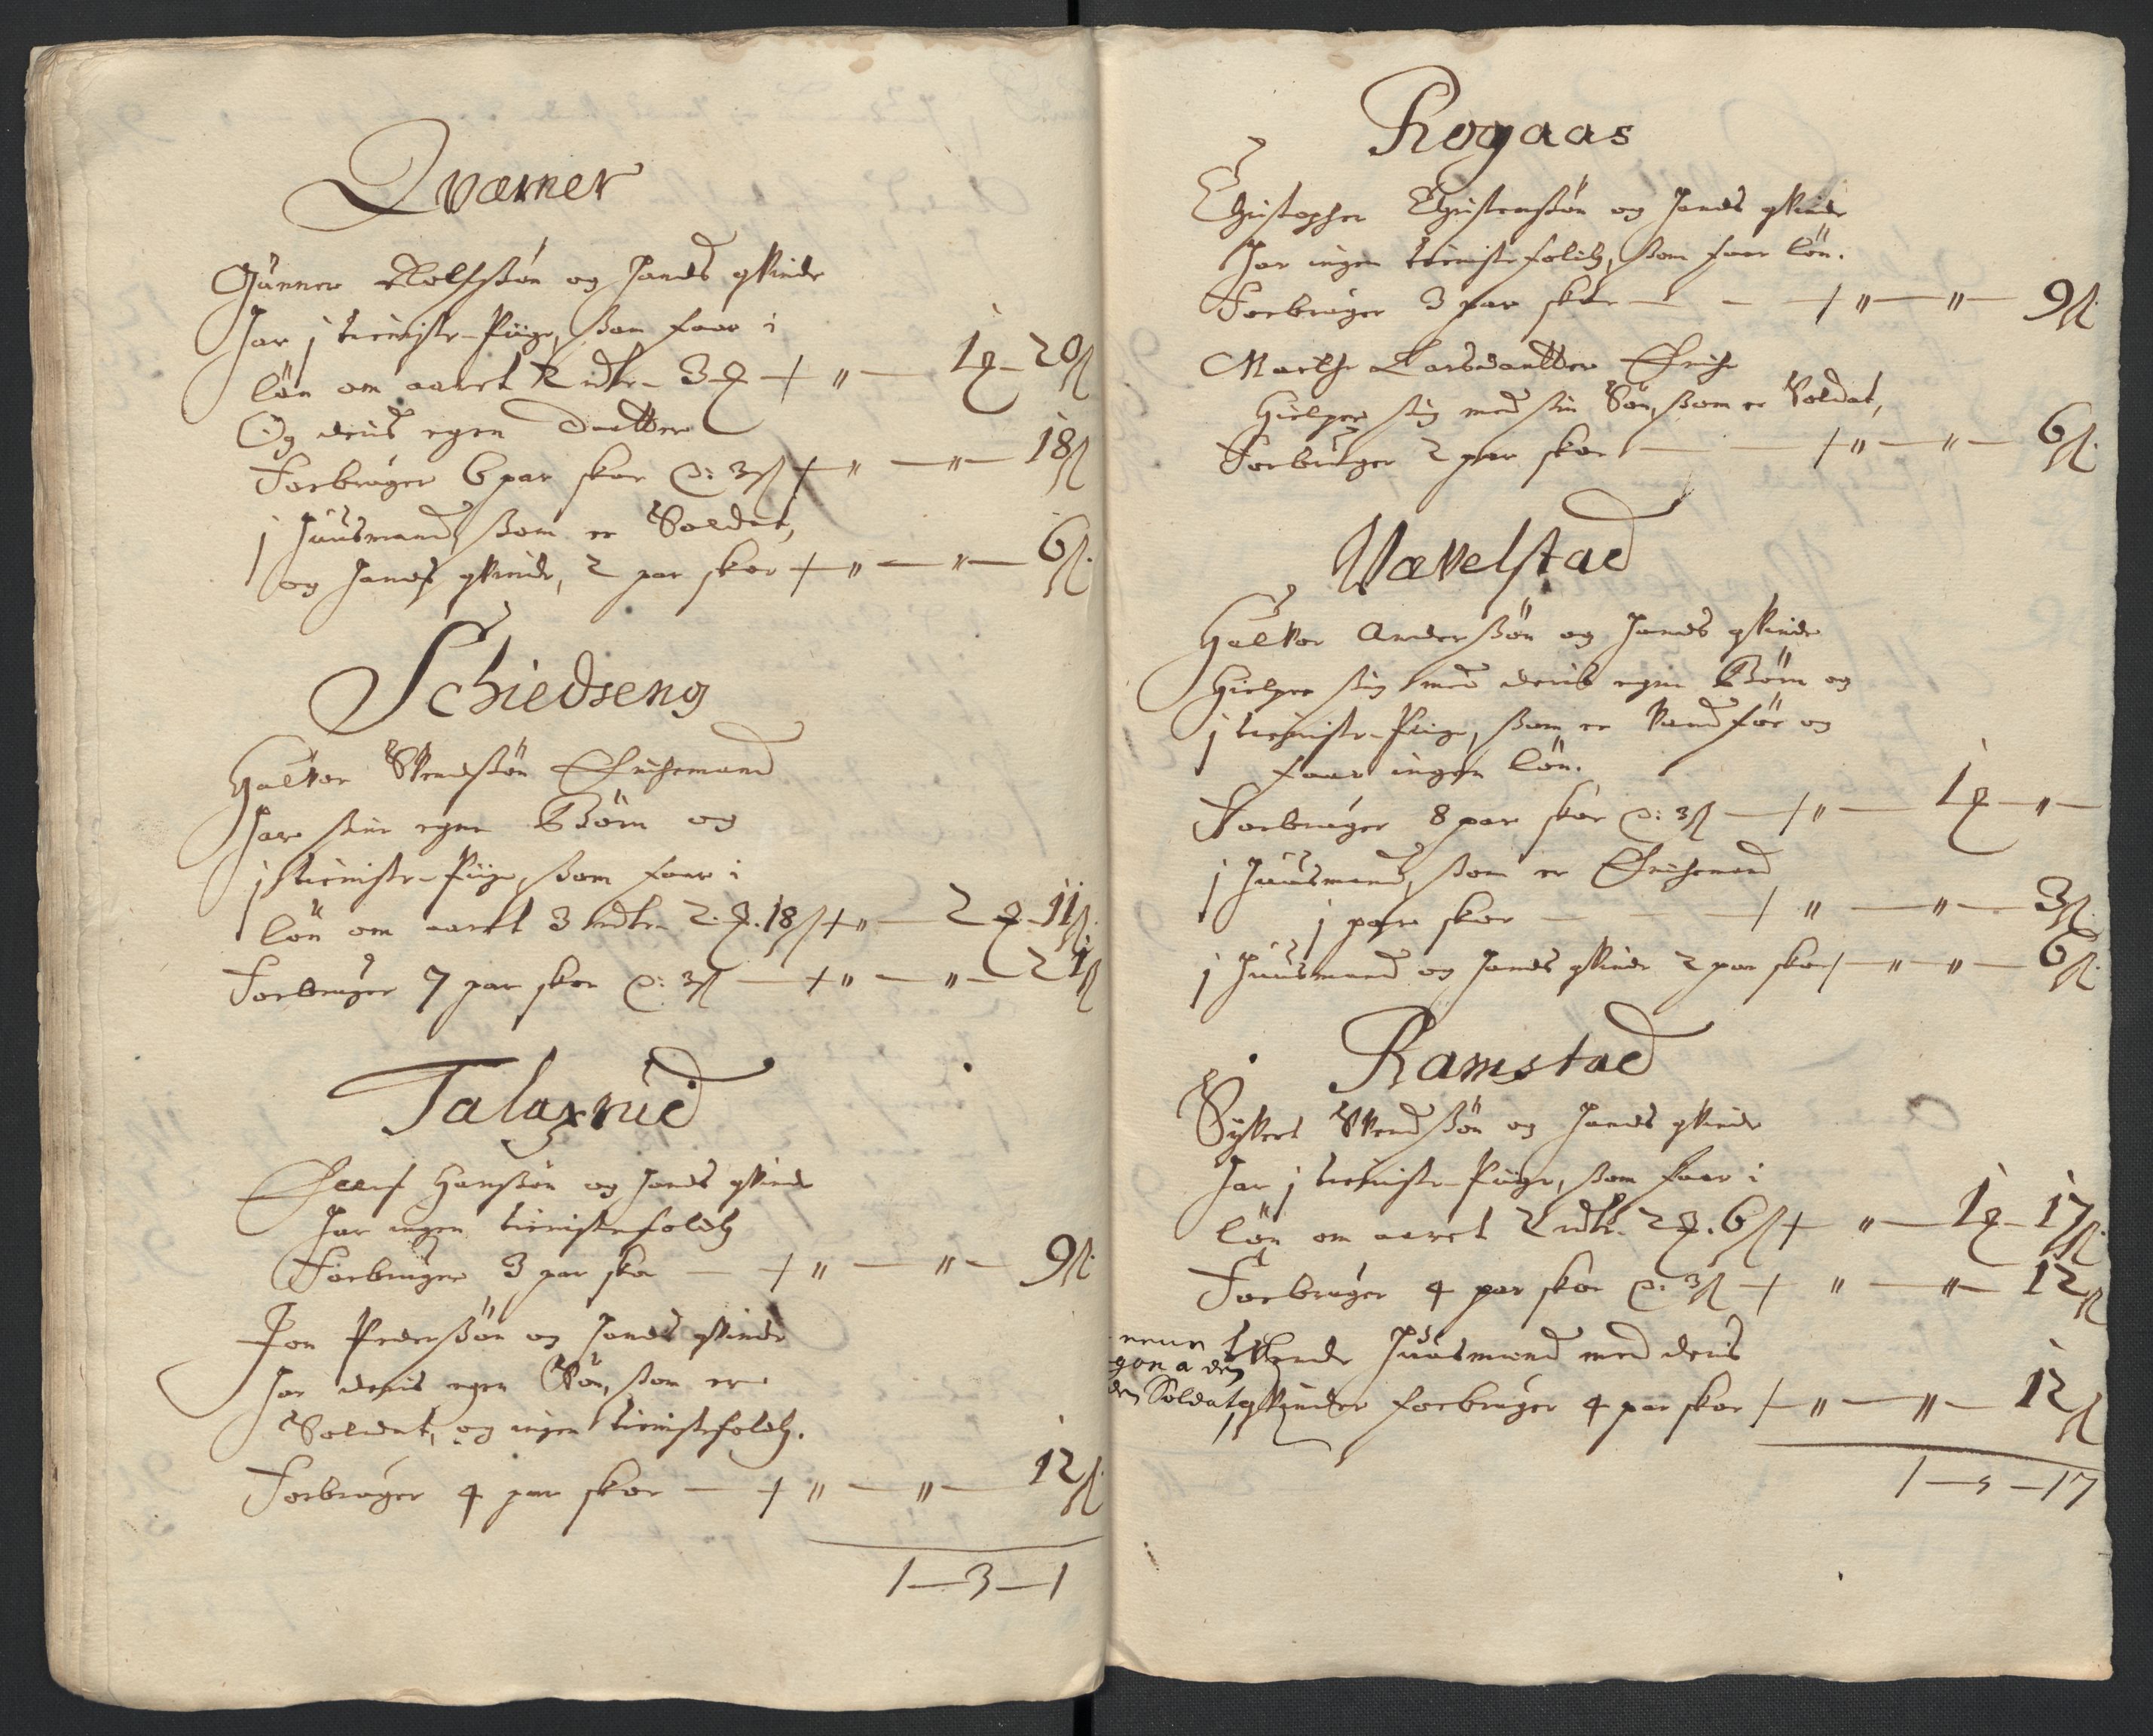 Qværner
Gunner Rolfssøn og hands qvinde
har j tieniste-Piige, som faar i
løn om aaret 2 rdlr. 3 ȝ + " — 1 ȝ - 20 ß
Og deris egen Daatter
Forbruger 6 par skoe ɔ: 3 ß + " — " — 18 ß
j huusmand, som er Soldat,
og hands qvinde, 2 par skoe + " — " — 6 ß.
Schiedseng
Halvor Svendssøn Enchemand
har sine egne Børn og
j tieniste-Piige, som faar i
løn om aaret 3 rdlr. 2 ȝ. 18 ß + " — 2 ȝ - 11 ß.
Forbruger 7 par skoe ɔ: 3 ß — + " — " — 21 ß
Talaxrud
Oluf Hanssøn og hands qvinde
har ingen tienistefolch
Forbruger 3 par skoe — + " — " — 9 ß.
Jon Pederssøn og hands qvinde
har deris egen Søn, som er
Soldat, og ingen tienistefolch.
Forbruger 4 par skoe — + " — " — 12 ß.
1 — 3 — 1
Rogaas
Christopher Christenssøn og hands qvinde
har ingen tienistefolch, som faar løn.
Forbruger 3 par skoe — — + " — " — 9 ß.
Marthe Larsdaatter Enche
Hielper sig med sin Søn, som er Soldat,
Forbruger 2 par skoe — + " — " — 6 ß.
Wævelstad
Halvor Anderssøn og hands qvinde
Hielper sig med deris egne Børn og
j tieniste-Piige, som er vandför og
faar ingen løn.
Forbruger 8 par skoe ɔ: 3 ß — + " — 1 ȝ — " —
j huusmand, som er Enchemand
j par skoe — + " — " — 3 ß.
j huusmand og hands qvinde 2 par skoe + — " — " — 6 ß.
Ramstad
Syvert Svendssøn og hands qvinde
har j tieniste-Piige, som faar i
løn om aaret 2 rdlr. 2 ȝ. 6 ß + " — 1 ȝ - 17 ß.
Forbruger 4 par skoe ɔ: 3 ß + " — " — 12 ß
Tvende huusmænd med deris
den Soldat qvinder forbruger 4 par skoe + — " — " — 12 ß
1 — 3 — 17